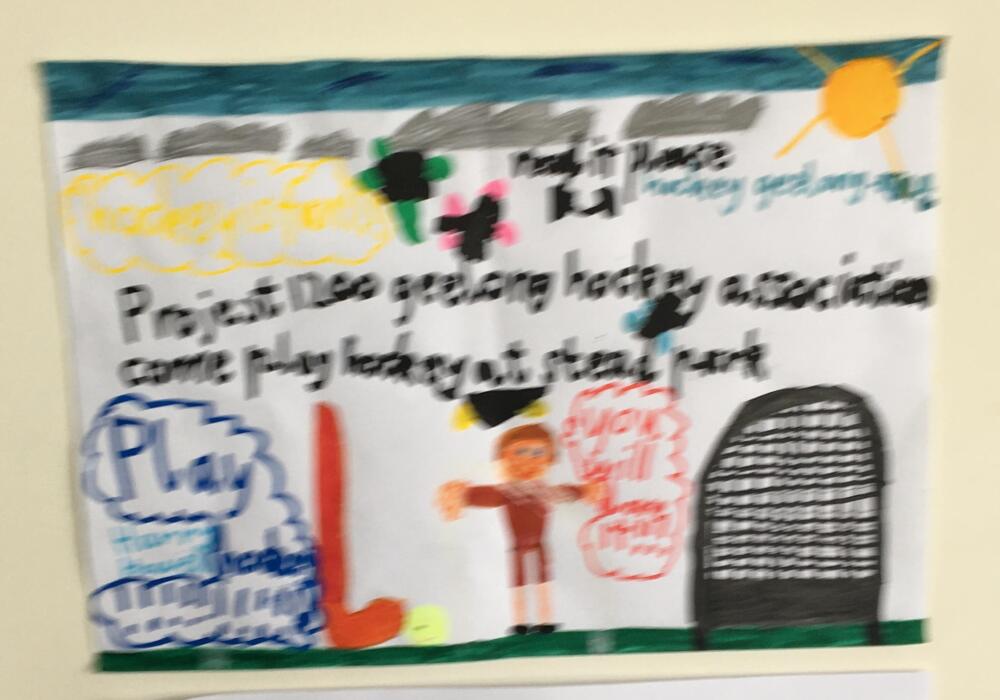 read it please
hockey geelong
hockey is fun
Project 1200 geelong hockey association
come play hockey at stead park
Play
hockey
you
will
have
fun